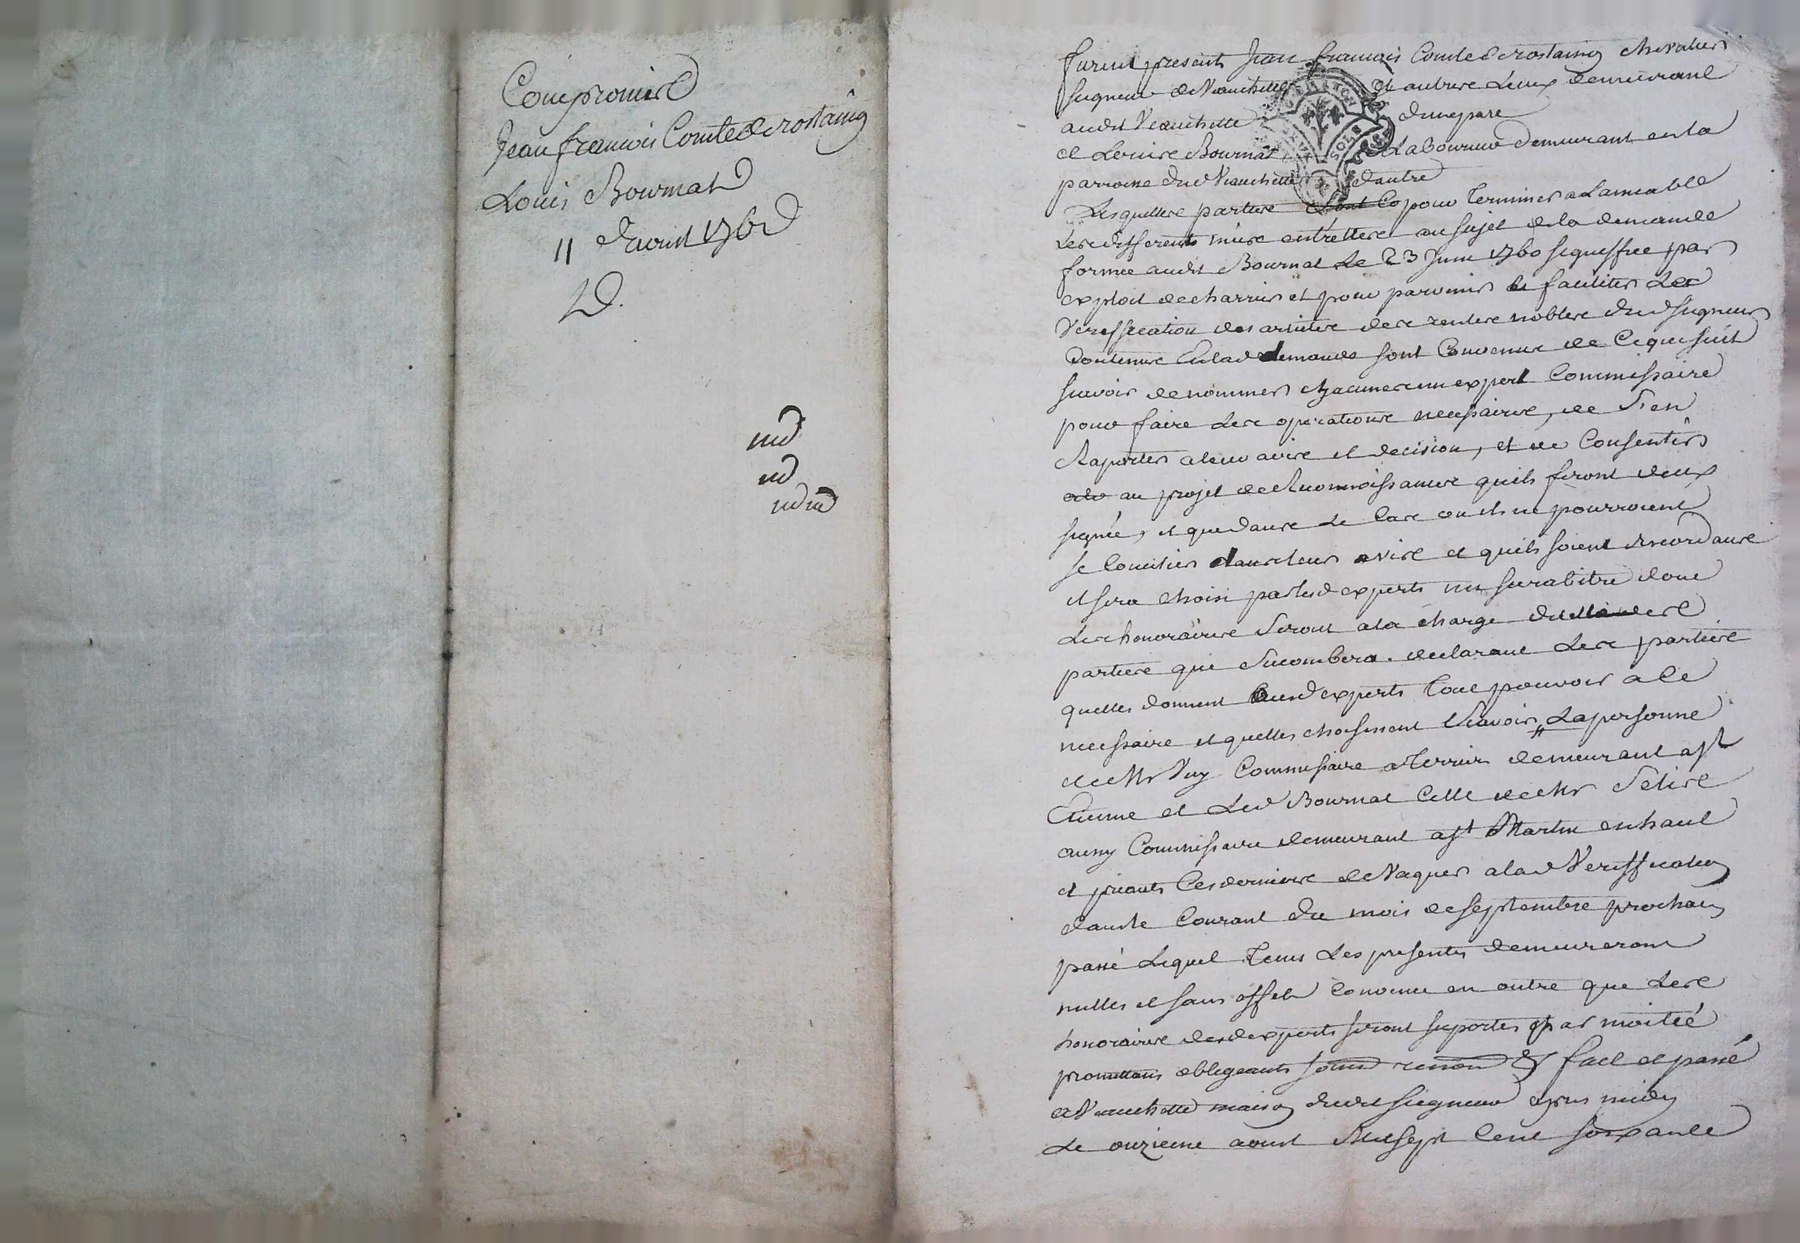 Compromis
Jean francois Comte de rostaing
Louis Bournat
11 d'aoust 176
furent presents Jean francois Comte de rostaing chevalier
seigneur de Veauchette et autres lieux demeurant
audit Veauchette d'une part
et Louis Bournat Laboureur demeurant en la
parroisse dud Veauchette d'autre
Lesquelles parties pour terminer a Lamiable
Les differents mus entrelles au sujet de la demande
formée audit Bournat Le 23 Juin 1760 signiffiee par
exploit de charrier et pour parvenir et faciliter Les
veriffication des articles des rentes nobles dud seigneur
Contenus en lad demande sont Convenus de Ce qui suit
scavoir de nommer chacunes un expert Commissaire
pour faire Les operations necessaires, de s'en
Raporter a leur avis et decision, et de Consentir
au projet de Reconnoissances quils feront deux
signé, et que dans Le Cas ou ils ne pourroient
se Concilier dans leurs avis et quils soient discordants
il sera choisi par lesd experts un surarbitre dont
Les honoraires seront a la charge de
parties qui sucombera. declarant Les parties
quelles donnent auxd experts tout pouvoir a Ce
necessaire et quelles choisissent scavoir La personne
de Mr Vuy Commissaire a terrier demeurant a St
Etienne et Led Bournat Celle de Mr
aussy Commissaire demeurant a St Martin en haut
et priants Ces derniers de Vaquer a lad Veriffication
dans le Courant du mois de septembre prochain
passé Lequel tems Les presentes demeureront
nulles et sans effet Convenu en outre que Les
honoraires desd experts seront suportes par moitié
promettans obligeants soumd renond & fait et passé
a Veauchette maison dudit seigneur apres midy
Le onzieme aoust mil sept Cent soixante